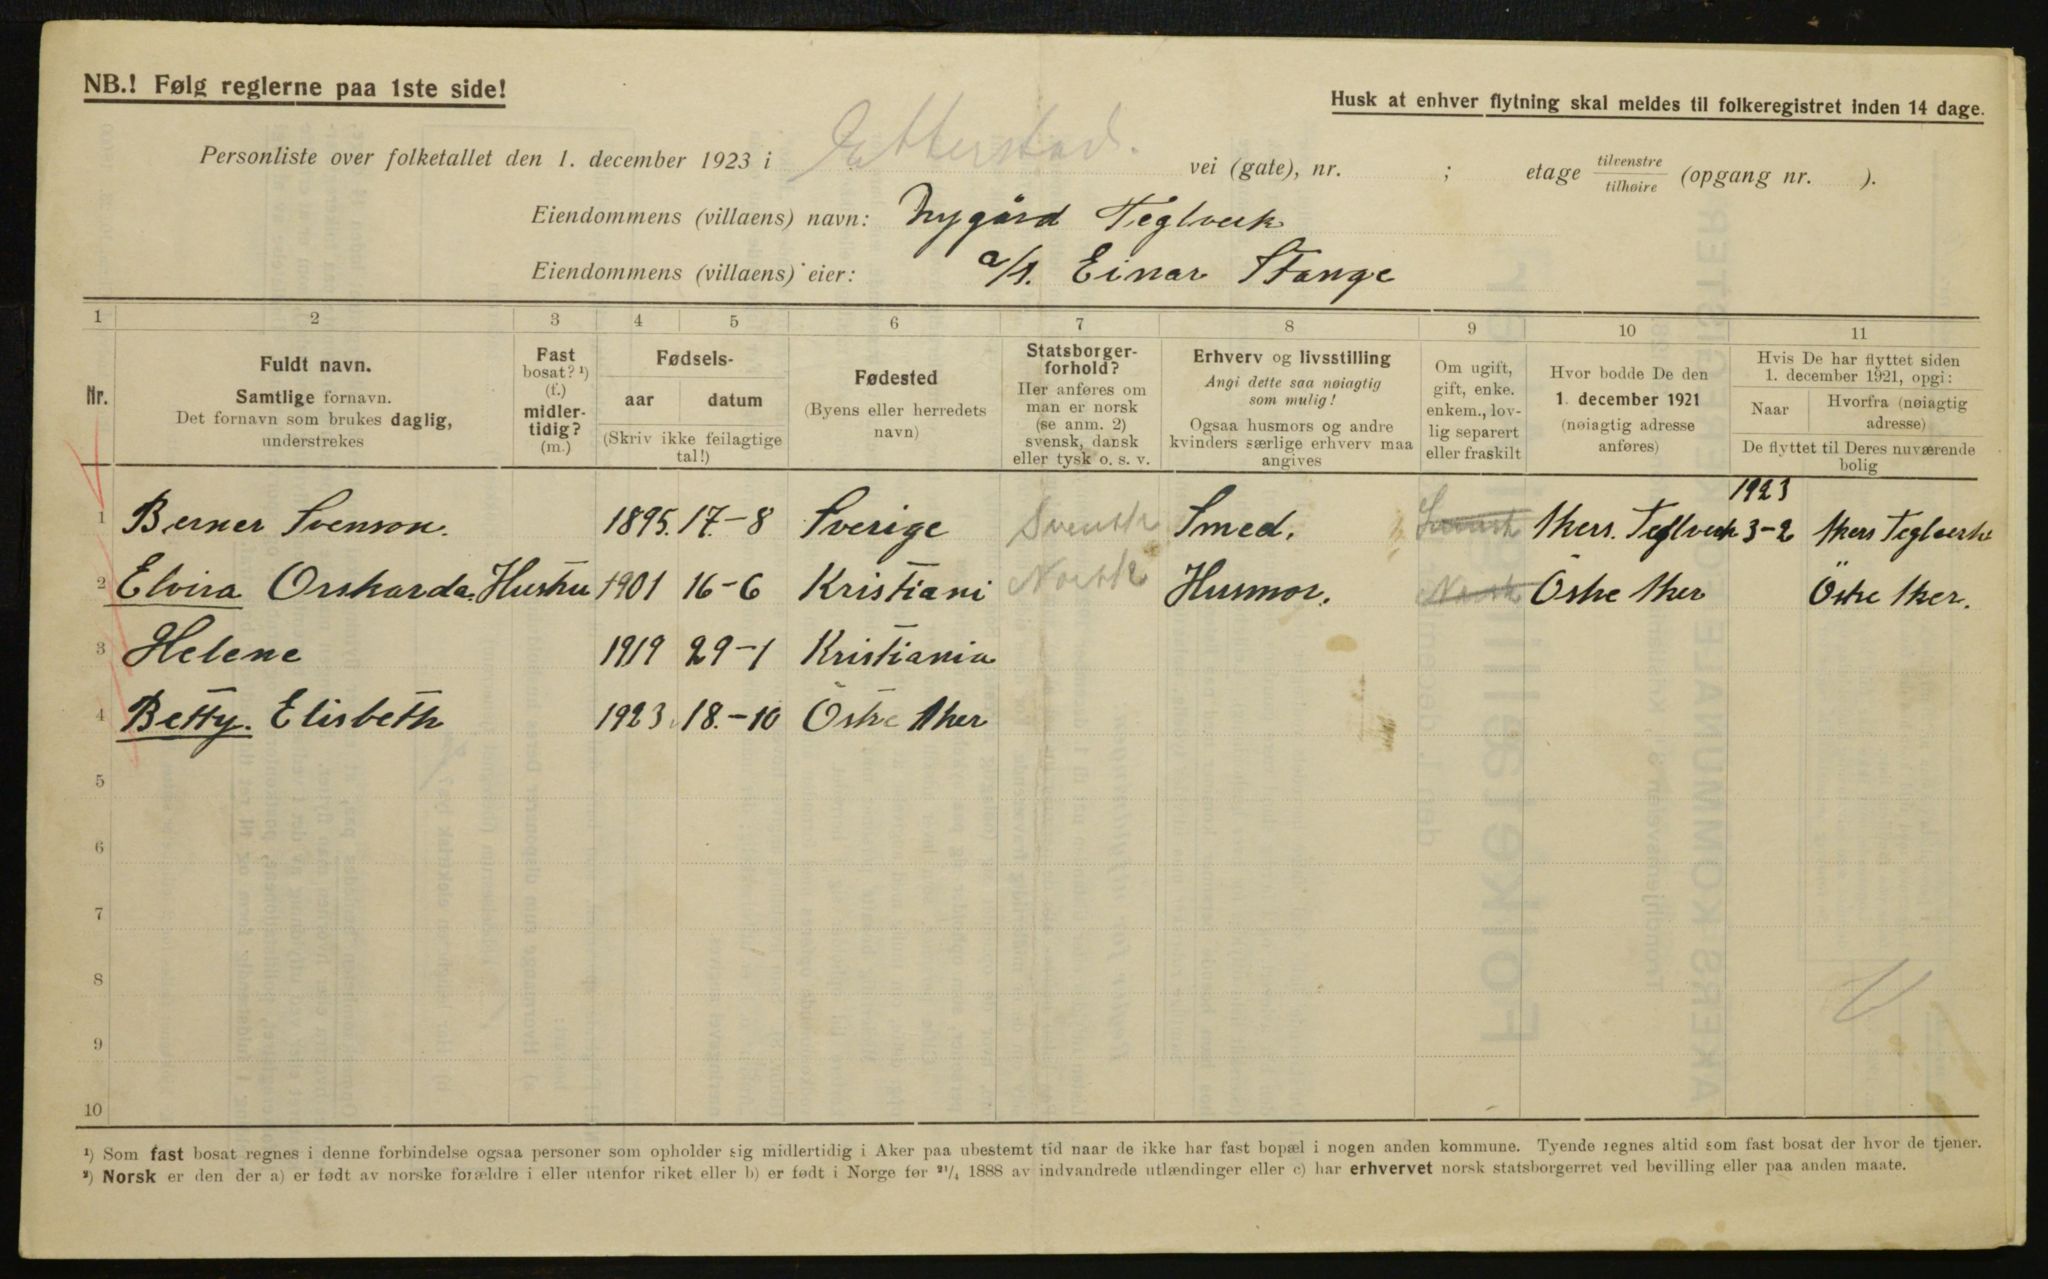 NB.! Følg reglerne paa 1ste side!
Husk at enhver flytning skal meldes til folkeregistret inden 14 dage.
Personliste over folketallet den 1. december 1923 i Etterstad. vei (gate), nr. ; etage tilvenstre / tilhøire (opgang nr. ).
Eiendommens (villaens) navn: Nygård Teglverk
Eiendommens (villaens) eier: a/s. Einar Stange
1 2 3 4 5 6 7 8 9 10 11
Nr.
Fuldt navn.
Samtlige fornavn.
Det fornavn som brukes daglig,
understrekes
Fast
bosat? ¹)
(f.)
midler-
tidig?
(m.)
Fødsels-
aar datum
(Skriv ikke feilagtige
tal!)
Fødested
(Byens eller herredets
navn)
Statsborger-
forhold?
Her anføres om
man er norsk
(se anm. 2)
svensk, dansk
eller tysk o. s. v.
Erhverv og livsstilling
Angi dette saa nøiagtig
som mulig!
Ogsaa husmors og andre
kvinders særlige erhverv maa
angives
Om ugift,
gift, enke.
enkem., lov-
lig separert
eller fraskilt
Hvor bodde De den
1. december 1921
(nøiagtig adresse
anføres)
Hvis De har flyttet siden
1. december 1921, opgi:
Naar
Hvorfra (nøiagtig
adresse)
De flyttet til Deres nuværende
bolig
1923
1 Berner Svenson. 1895. 17.-8 Sverige Svensk Smed. Svensk Akers. Teglverk 3-2 Akers Teglverk
2 Elvira Orskarda. Hustru 1901 16-6 Kristiani Norsk Husmor. Norsk Östre Aker Östre Aker.
3 Helene 1919 29-1 Kristiania
4 Betty. Elisbeth 1923 18.-10 Östre Aker
5
6
7
8
9
10
¹) Som fast bosat regnes i denne forbindelse ogsaa personer som opholder sig midlertidig i Aker paa ubestemt tid naar de ikke har fast bopæl i nogen anden kommune. Tyende regnes altid som fast bosat der hvor de tjener.
²) Norsk er den der a) er født av norske forældre i eller utenfor riket eller b) er født i Norge før ²¹/₄ 1888 av indvandrede utlændinger eller c) har erhvervet norsk statsborgerret ved bevilling eller paa anden maate.